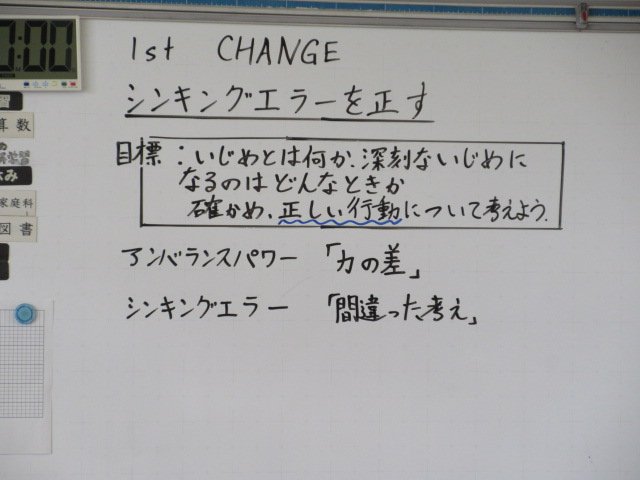 1st CHANGE
シンキングエラーを正す
目標：いじめとは何か、深刻ないじめに
なるのはどんなときか
確かめ、正しい行動について考えよう。
アンバランスパワー 「力の差」
シンキングエラー 「間違った考え」
:00
算数
家庭科
図書